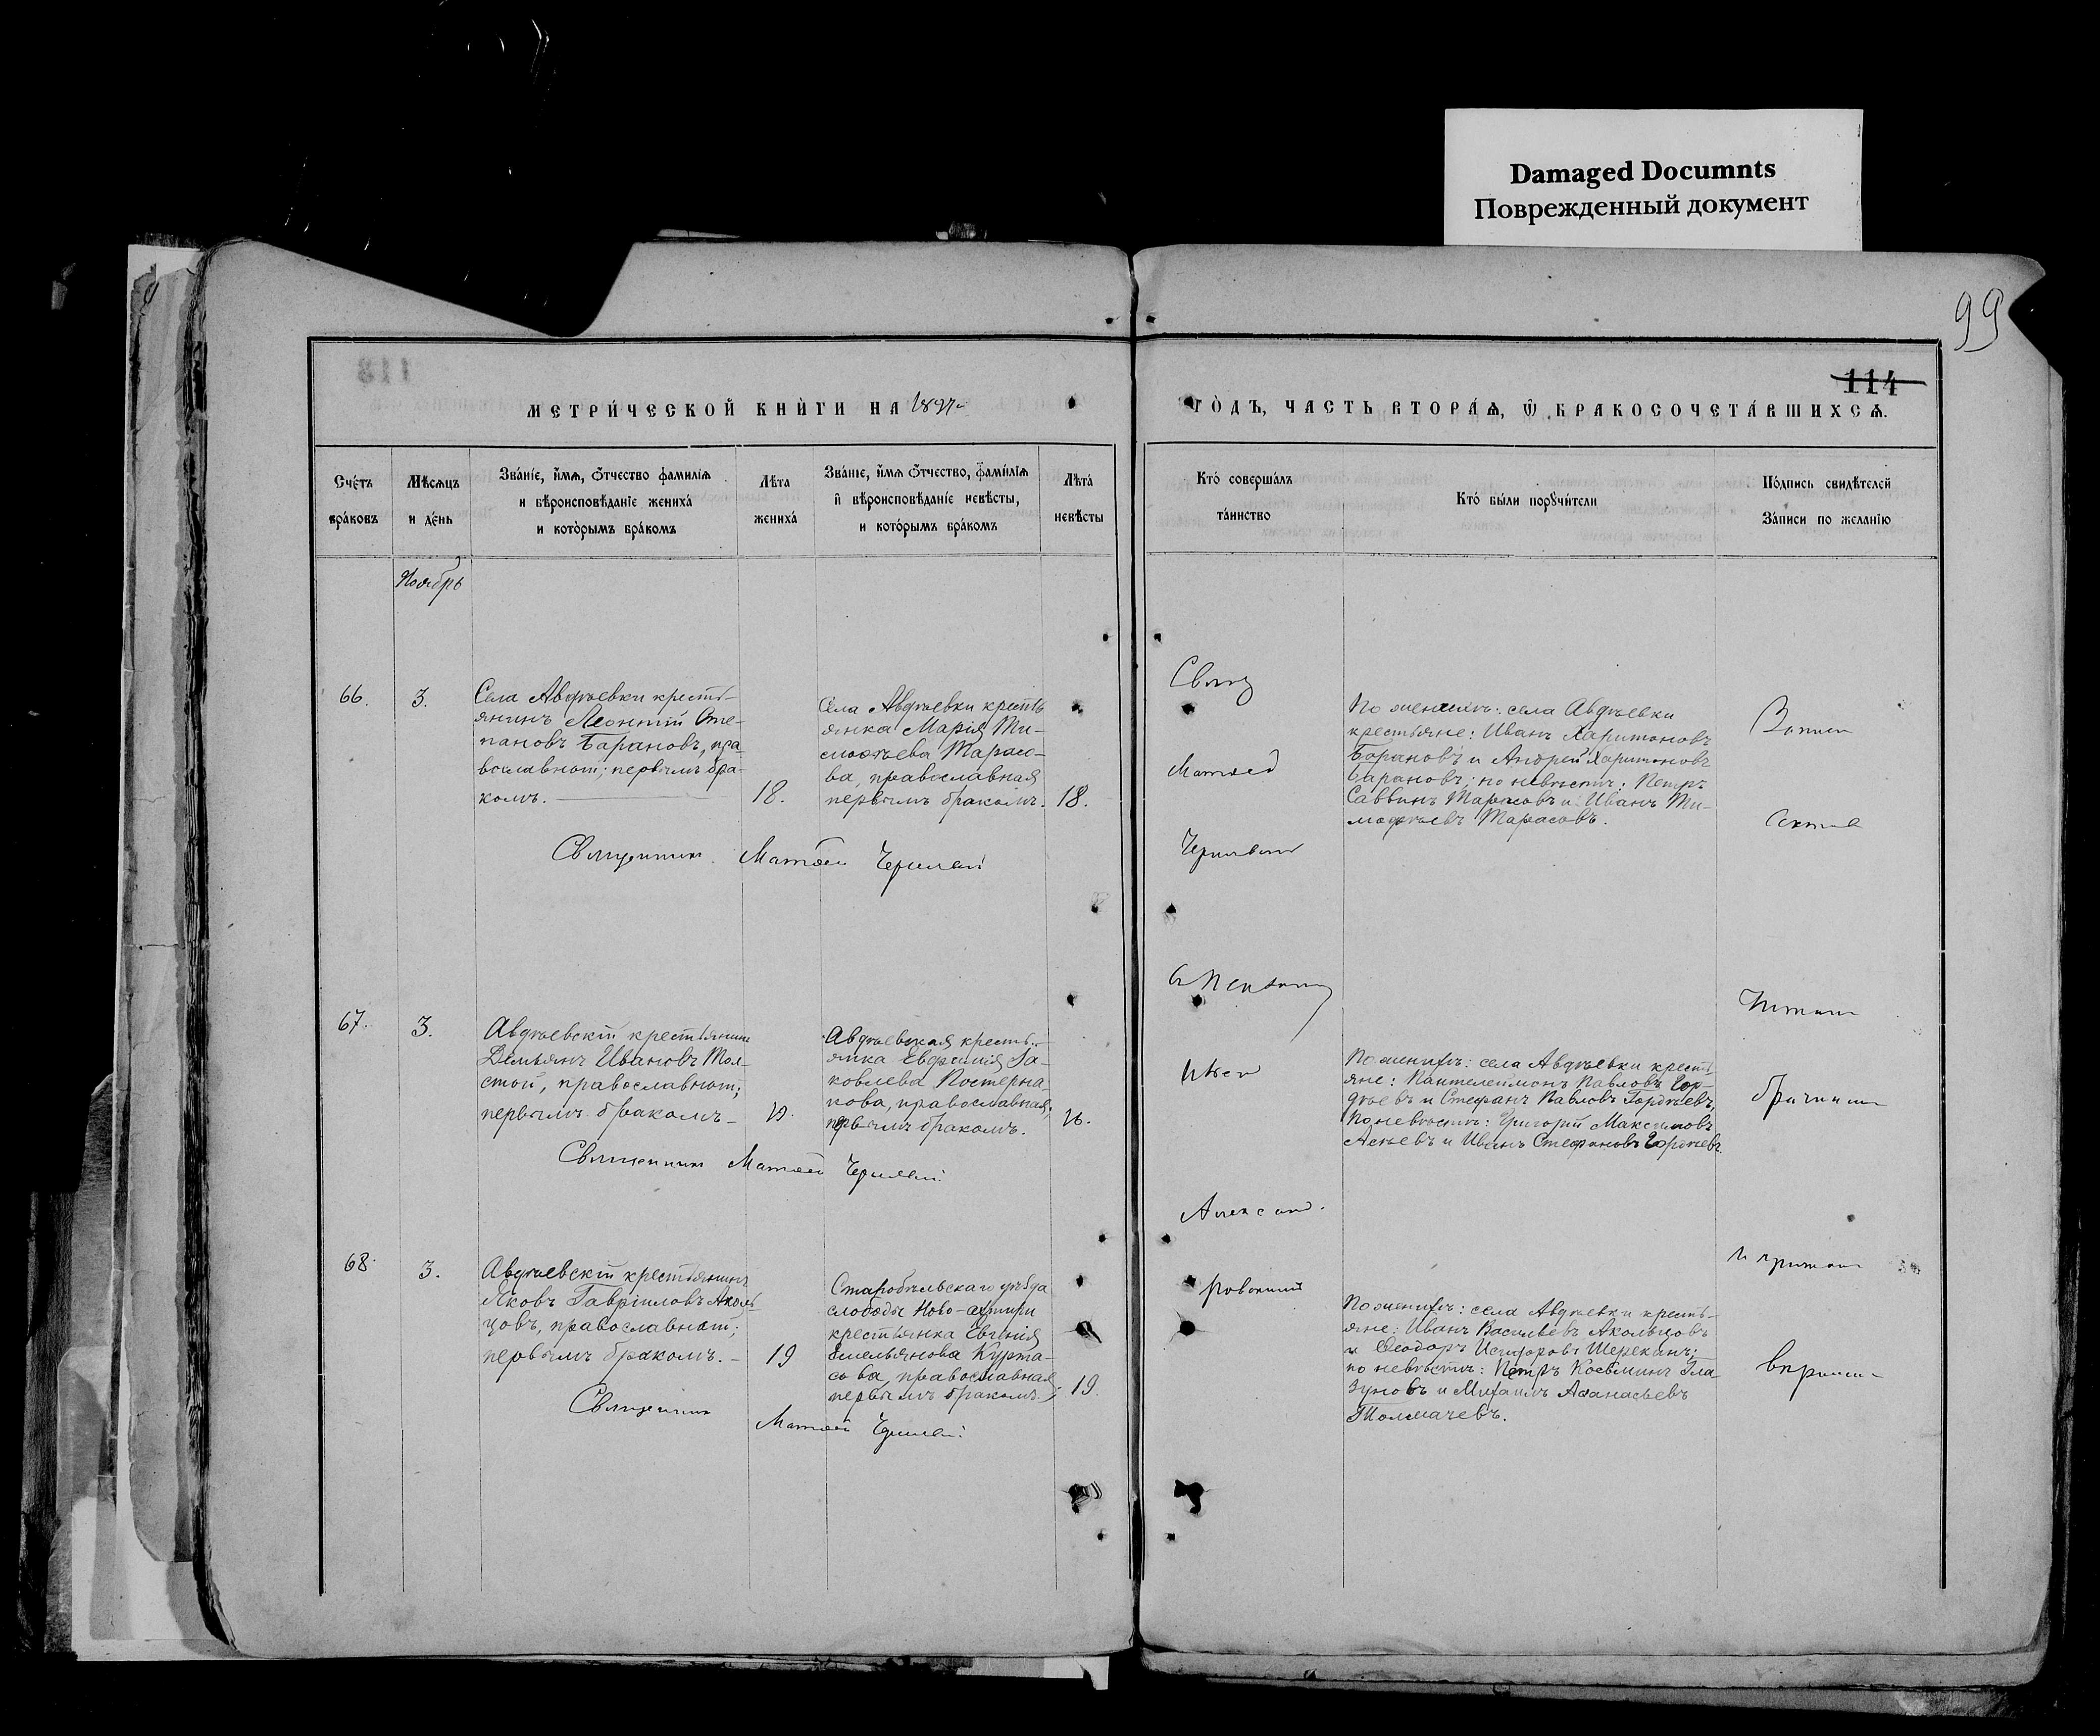 Damaged Documnts
Поврежденный документ
99
114
МЕТРИ́ЧЕСКОЙ КНИ́ГИ НА 1897
ГО́ДЪ, ЧАСТЬ ВТОРА́Ѧ, Ѿ БРАКОСОЧЕТА́ВШИХСѦ.
Сче́тъ
бра́ковъ
Мѣ́сѧцъ
и де́нь
Зва́нїе, и҆́мѧ, ѻ҆́тчество фамилїѧ
и вѣроисповѣ́данїе жениха́
и кото́рымъ бра́комъ
Лѣ́та
жениха́
Зва́нїе, и҆́мѧ ѻ҆́тчество, фами́лїѧ
и҆ вѣроисповѣ́данїе невѣ́сты,
и кото́рымъ бра́комъ
Лѣта́
невѣ́сты
Кто́ соверша́лъ
та́инство
Кто́ бы́ли порꙋчи́тели
По́дпись свидѣ́телей
За́писи по жела́нїю
Ноябрь
66.
3.
Села Авдѣевки кресть-
янинъ Леонтій Сте-
пановъ Барановъ, пра-
вославный; первымъ бра-
комъ.
18.
Села Авдѣевки кресть
янка Марія Ти-
моѳѣева Тарасо-
ва, православная
первымъ бракомъ.
18.
По женихѣ: села Авдѣевки
крестьяне: Иванъ Харитоновъ
Барановъ и Андрей Харитоновъ
Барановъ; по невѣстѣ: Петръ
Саввинъ Тарасовъ и Иванъ Ти-
моѳѣевъ Тарасовъ.
Матѳей
Священникъ Матѳей
67.
3.
Авдѣевскій крестьянинъ
Демьянъ Ивановъ Тол-
стой, православный;
первымъ бракомъ
Авдѣевская кресть-
янка Евфимія Яа-
ковлева Постерна-
кова, православная;
первымъ бракомъ.
По женихѣ: села Авдѣевки кресть
яне: Пантелеймонъ Павловъ Гор-
дѣевъ и Стефанъ Павловъ Гордѣевъ,
По невѣстѣ: Григорій Максимовъ
и Иванъ Стефановъ Гордѣевъ.
Священникъ Матѳей
Александ-
ровскій
68.
3.
Авдѣевскій крестьянинъ
Яковъ Гавріиловъ Аколь
цовъ, православный;
первымъ бракомъ.
19
Старобѣльскаго уѣзда
слободы Ново-ахтыри
крестьянка Евгенія
Емельянова Курта-
сова, православная
первымъ бракомъ.
19.
По женихѣ: села Авдѣевки кресть-
яне: Иванъ Васильевъ Акольцовъ
и Ѳеодоръ Исидоровъ Шереканъ;
по невѣстѣ: Петръ Косьминъ Гла
зуновъ и Михаилъ Аѳанасьевъ
Толмачевъ.
Священникъ
Матѳей